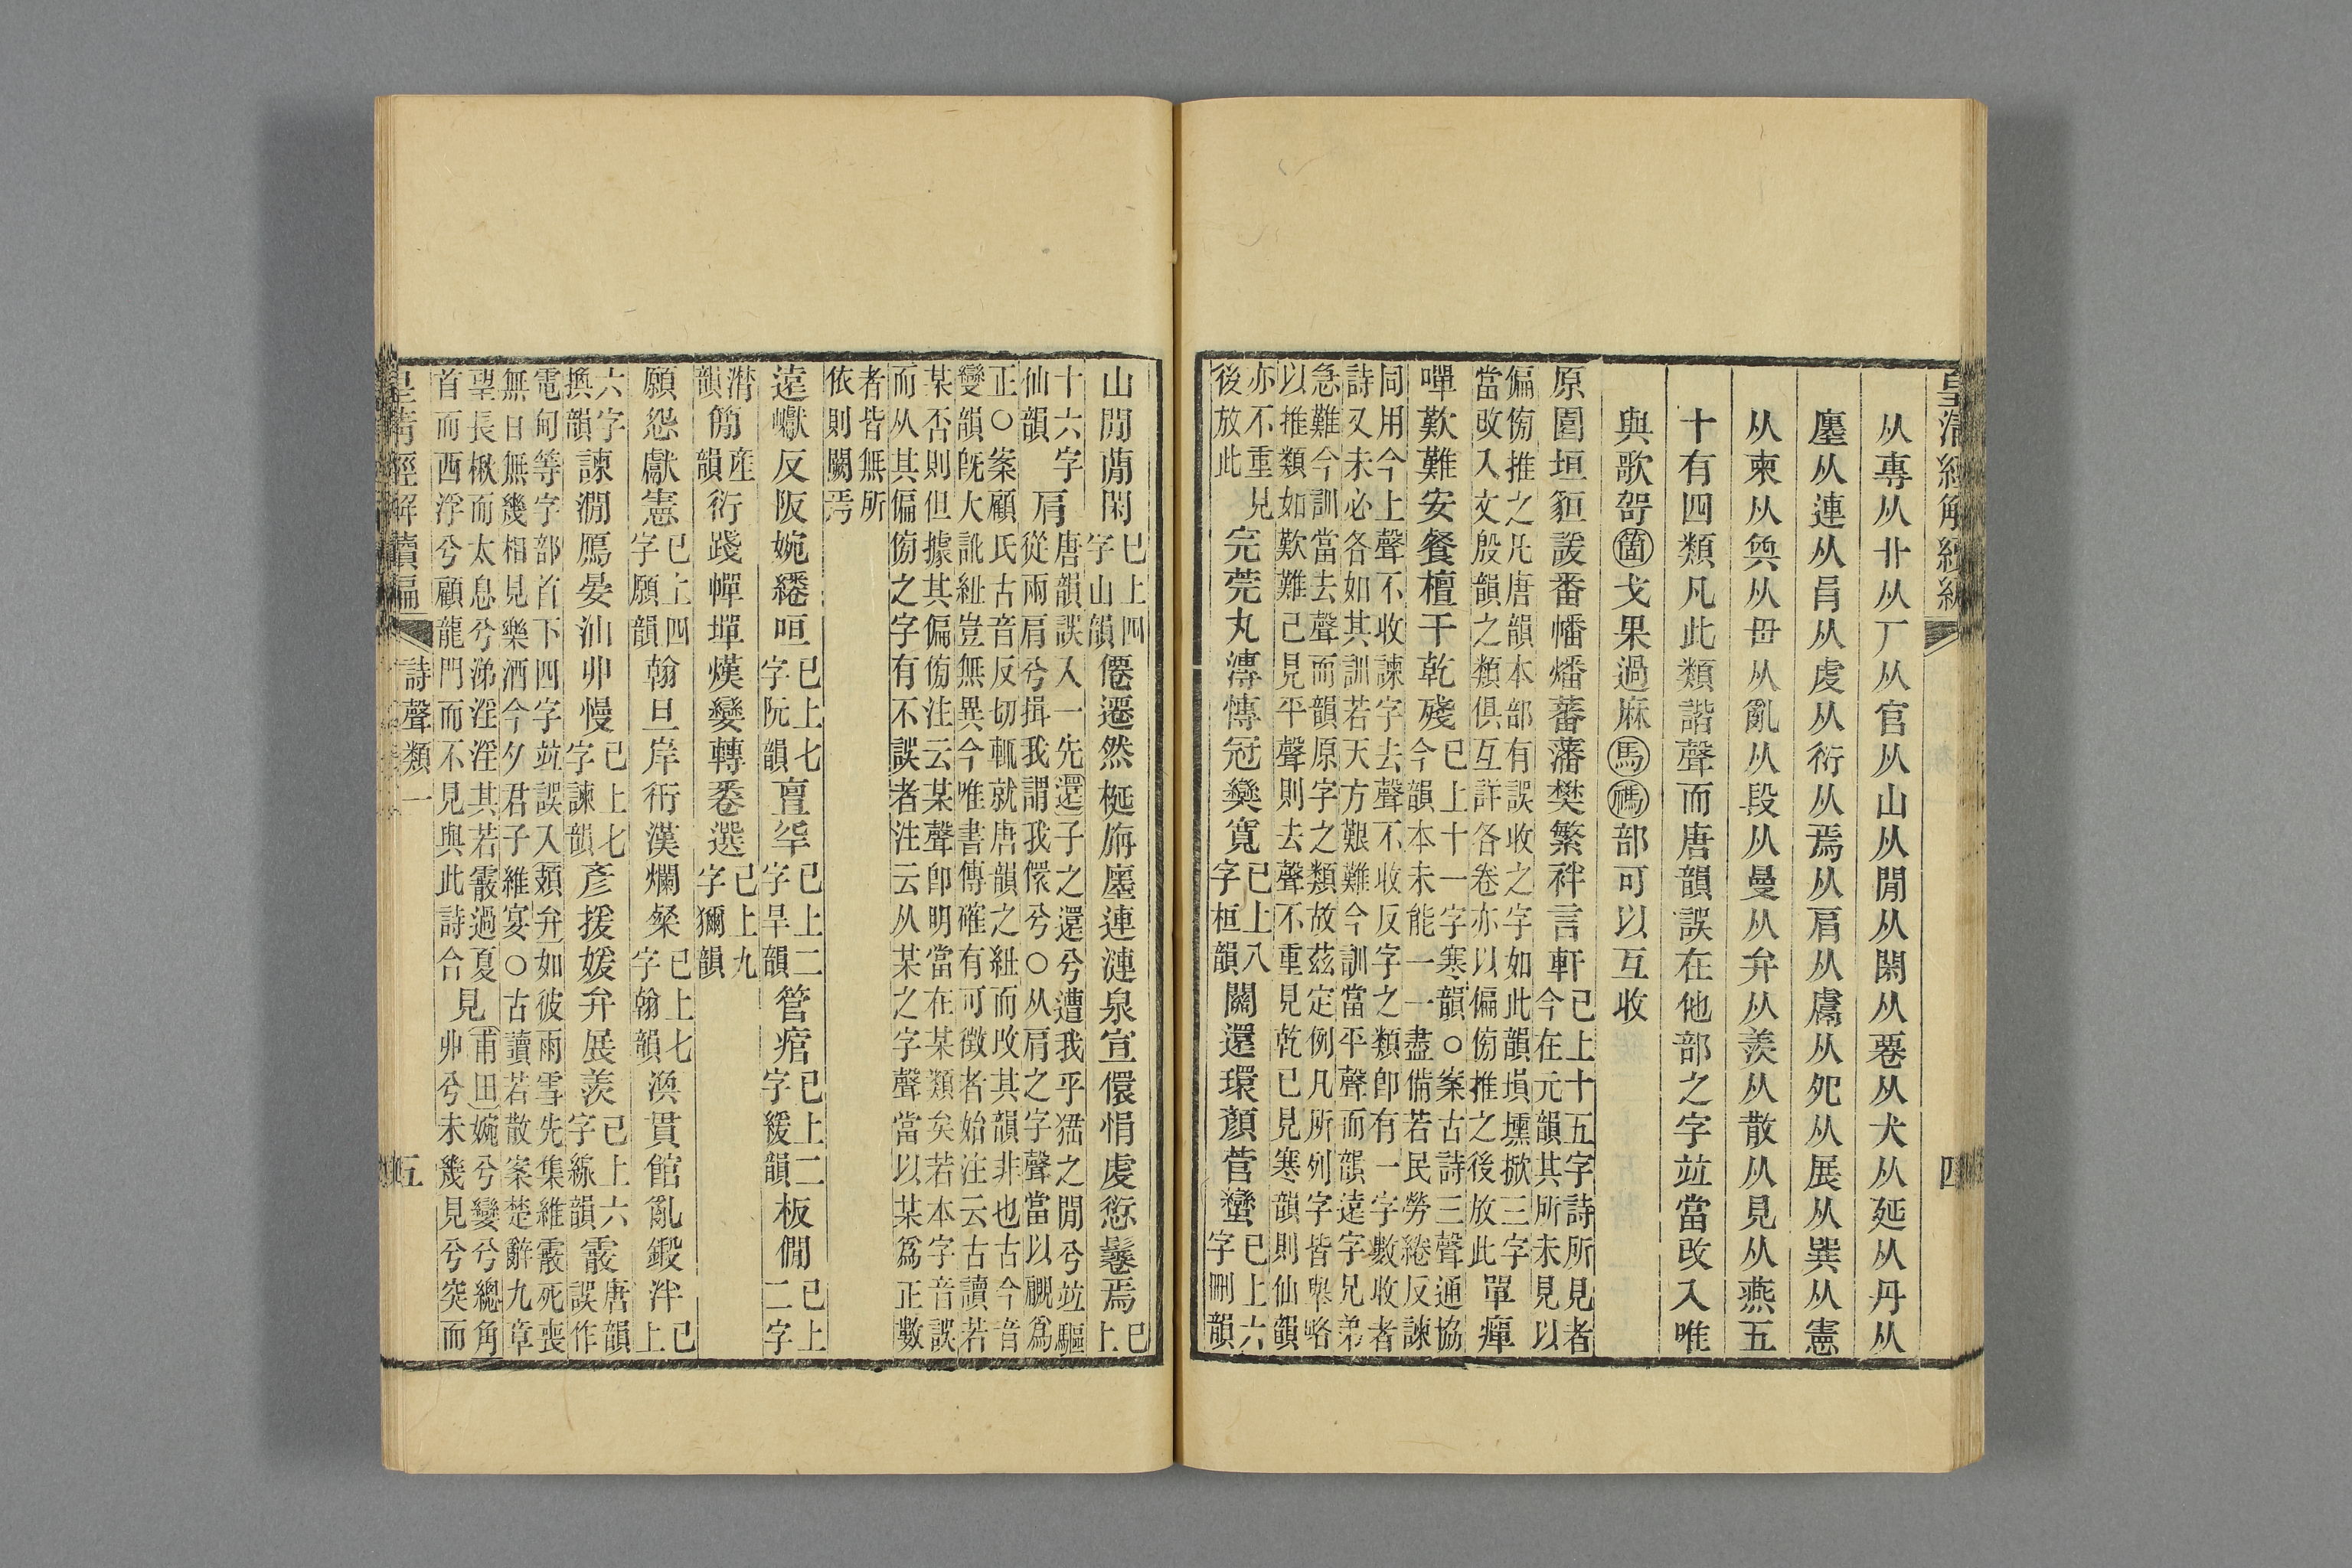 从專从卝从厂从官从山从閒从閑从䙴从犬从延从丹从
廛从連从肙从虔从衍从焉从肩从鬳从㞋从展从巽从憲
从柬从奐从毌从亂从段从曼从弁从羨从散从見从燕五
十有四類凡此類諧聲而唐韻誤在他部之字竝當改入唯
與歌哿箇戈果過麻馬禡部可以互收
原園垣貆諼番幡燔蕃藩樊繁袢言軒
已上十五字詩所見者
今在元韻其所未見以
偏㑄推之凡唐韻本部有誤收之字如此韻塤壎掀三字
當改入文殷韻之類俱互詳各卷亦以偏㑄推之後放此
單癉
嘽歎難安餐檀干乾殘
已上十一字寒韻○案古詩三聲通協
今韻本未能一一盡備若民勞綣反諫
同用今上聲不收諫字去聲不收反字之類即有一字數收者
詩又未必各如其訓若天方艱難今訓當平聲而韻遠字兄弟
急難今訓當去聲而韻原字之類故茲定例凡所列字皆舉略
以推類如歎難已見平聲則去聲不重見乾已見寒韻則仙韻
亦不重見
後放此
完莞丸漙慱冠欒寬
已上八
字桓韻
關還環顏菅蠻
已上六
字刪韻
山閒蕑閑
已上四
字山韻
僊遷然梴旃廛連漣泉宣儇悁虔愆鬈焉
已
上
十六字
仙韻
肩
唐韻誤入一先還子之還兮遭我乎猺之閒兮竝驅
從兩肩兮揖我謂我儇兮○从肩之字聲當以覵爲
正○案顧氏古音反切輒就唐韻之紐而改其韻非也古今音
變韻旣大訛紐豈無異今唯書傳確有可徵者始注云古讀若
某否則但據其偏㑄注云某聲即明當在某類矣若本字音誤
而从其偏㑄之字有不誤者注云从某之字聲當以某爲正數
者皆無所
依則闕焉
遠巘反阪婉綣咺
已上七
字阮韻
亶罕
已上二
字旱韻
管痯
已上二
字緩韻
板僩
已上
二字
潸
韻
簡
產
韻
衍踐幝墠熯孌轉卷選
已上九
字獮韻
願怨獻憲
已上四
字願韻
翰旦岸衎漢爛粲
已上七
字翰韻
渙貫館亂鍛泮
已
上
六字
換韻
諫澗鴈晏汕丱慢
已上七
字諫韻
彥援媛弁展羨
已上六
字線韻
霰
唐韻
誤作
電甸等字部首下四字竝誤入頍弁如彼雨雪先集維霰死喪
無日無幾相見樂酒今夕君子維宴○古讀若散案楚辭九章
望長楸而太息兮涕淫淫其若霰過夏
首而西浮兮顧龍門而不見與此詩合
見
甫田婉兮孌兮總角
丱兮未幾見兮突而
詩聲類一
五